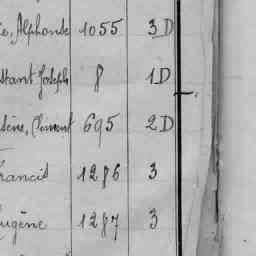 e, Alphonse 1055 3D
stant Joseph 8 1D
sène, Clément 695 2D
rancis 1286 3
ugène 1287 3